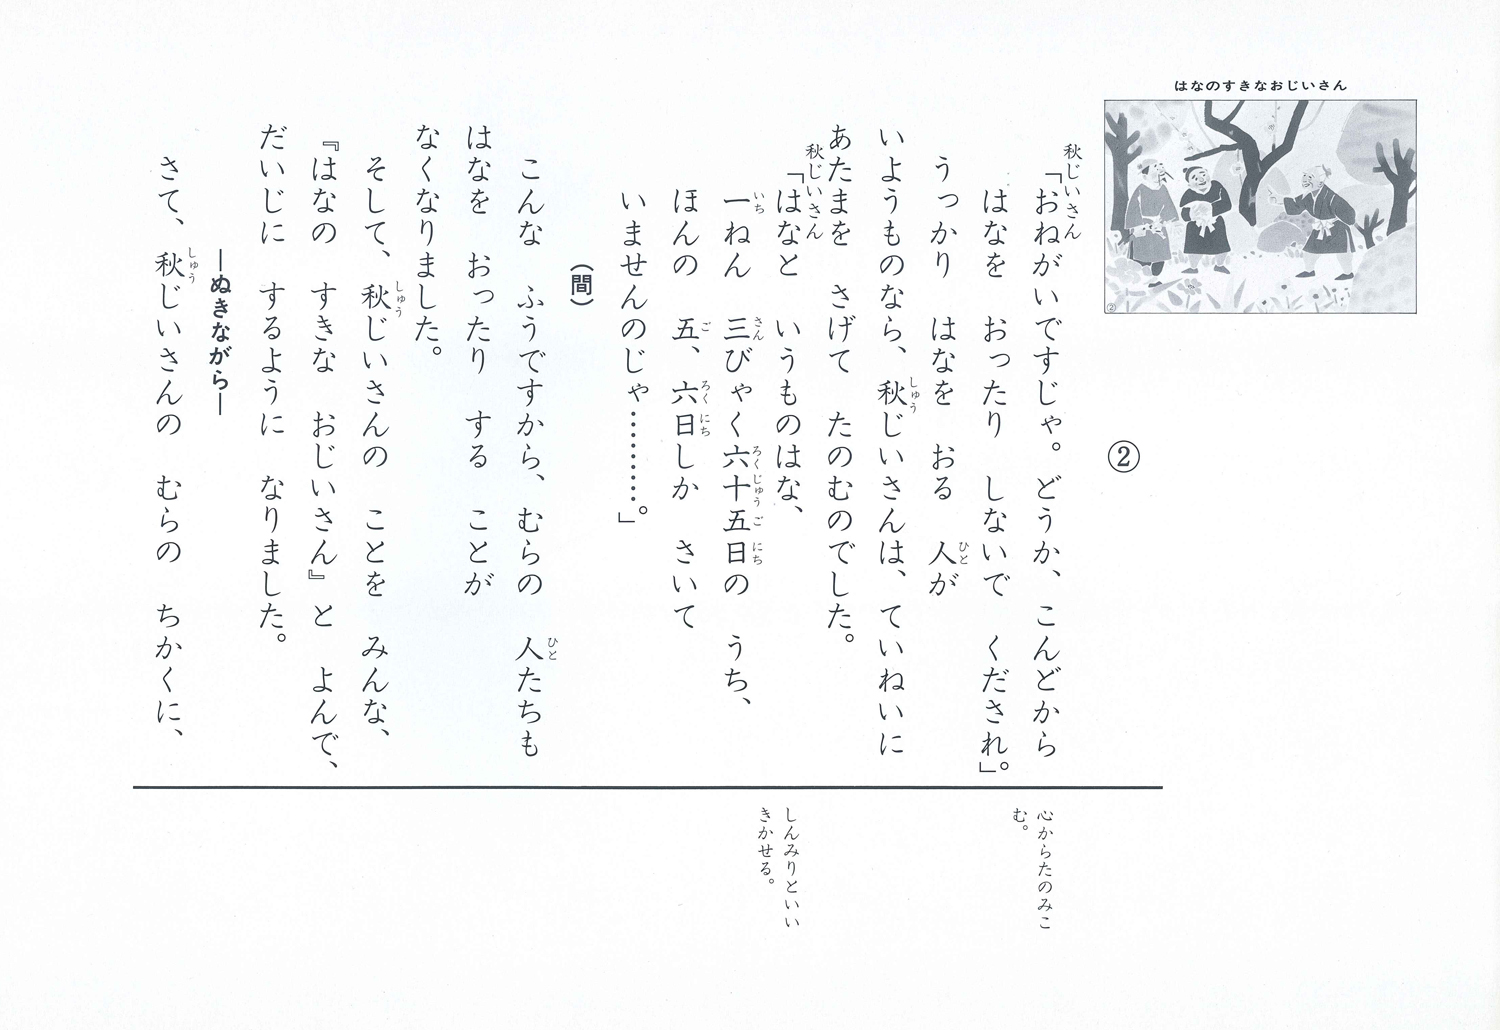 はなのすきなおじいさん
②
②
秋じいさん
「おねがいですじゃ。どうか、こんどから
はなを　おったり　しないで　くだされ」。
うっかり　はなを　おる　人が
ひと
いようものなら、秋じいさんは、ていねいに
しゅう
あたまを　さげて　たのむのでした。
秋じいさん
「はなと　いうものはな、
一ねん　三びゃく六十五日の　うち、
いち　さん　ろくじゅうご　にち
ほんの　五、六日しか　さいて
ご　ろく　にち
いませんのじゃ…………。」
（間）
こんな　ふうですから、むらの　人たちも
ひと
はなを　おったり　する　ことが
なくなりました。
そして、秋じいさんの　ことを　みんな、
しゅう
『はなの　すきな　おじいさん』と　よんで、
だいじに　するように　なりました。
―ぬきながら―
さて、秋じいさんの　むらの　ちかくに、
しゅう
心からたのみこ
む。
しんみりといい
きかせる。